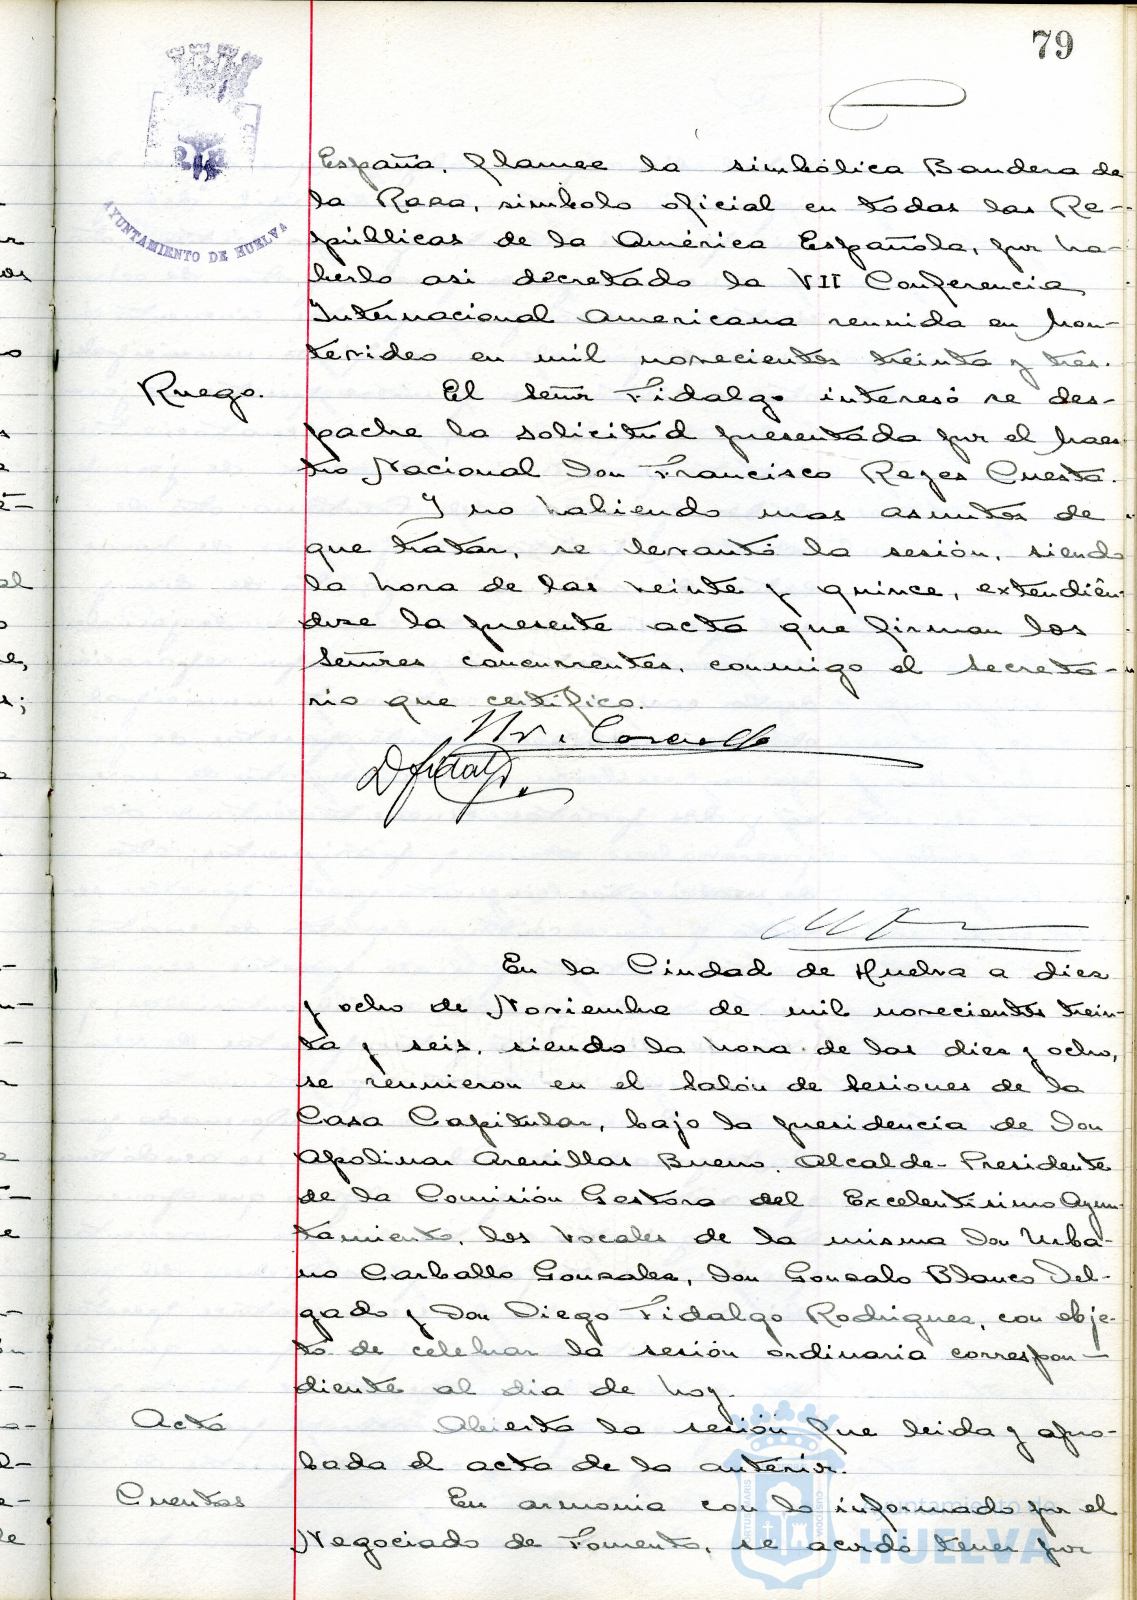 79
AYUNTAMIENTO DE HUELVA
España, flamee la simbólica Bandera de
la Raza, simbolo oficial en todas las Re-
públicas de la América Española, por ha-
berlo asi decretado la VII Conferencia
Internacional Americana reunida en Mon-
tevideo en mil novecientos treinta y tres.
Ruego.
El Señor Fidalgo interesó se des-
pache la solicitud presentada por el Maes
tro Nacional Don Francisco Reyes Cuesta.
Y no habiendo mas asuntos de
que tratar, se levantó la sesión, siendo
la hora de las veinte y quince, extendién-
dose la presente acta que firman los
Señores concurrentes, conmigo el Secreta-
rio que certifico.
D Fidalgo
En la Ciudad de Huelva a diez
y ocho de Noviembre de mil novecientos trein-
ta y seis, siendo la hora de las diez y ocho,
se reunieron en el Salón de Sesiones de la
Casa Capitular, bajo la presidencia de Don
Apolinar Arenillas Bueno, Alcalde-Presidente
de la Comisión Gestora del Excelentísimo Ayun-
tamiento, los Vocales de la misma Don Urba-
no Carballo Gonzalez, Don Gonzalo Blanco Del-
gado y Don Diego Fidalgo Rodriguez, con obje-
to de celebrar la sesión ordinaria correspon-
diente al dia de hoy.
Acta
Abierta la sesión fue leida y apro-
bada el acta de la anterior.
Cuentas
En armonia con lo informado por el
Negociado de Fomento, se acordó tener por
Ayuntamiento de
HUELVA